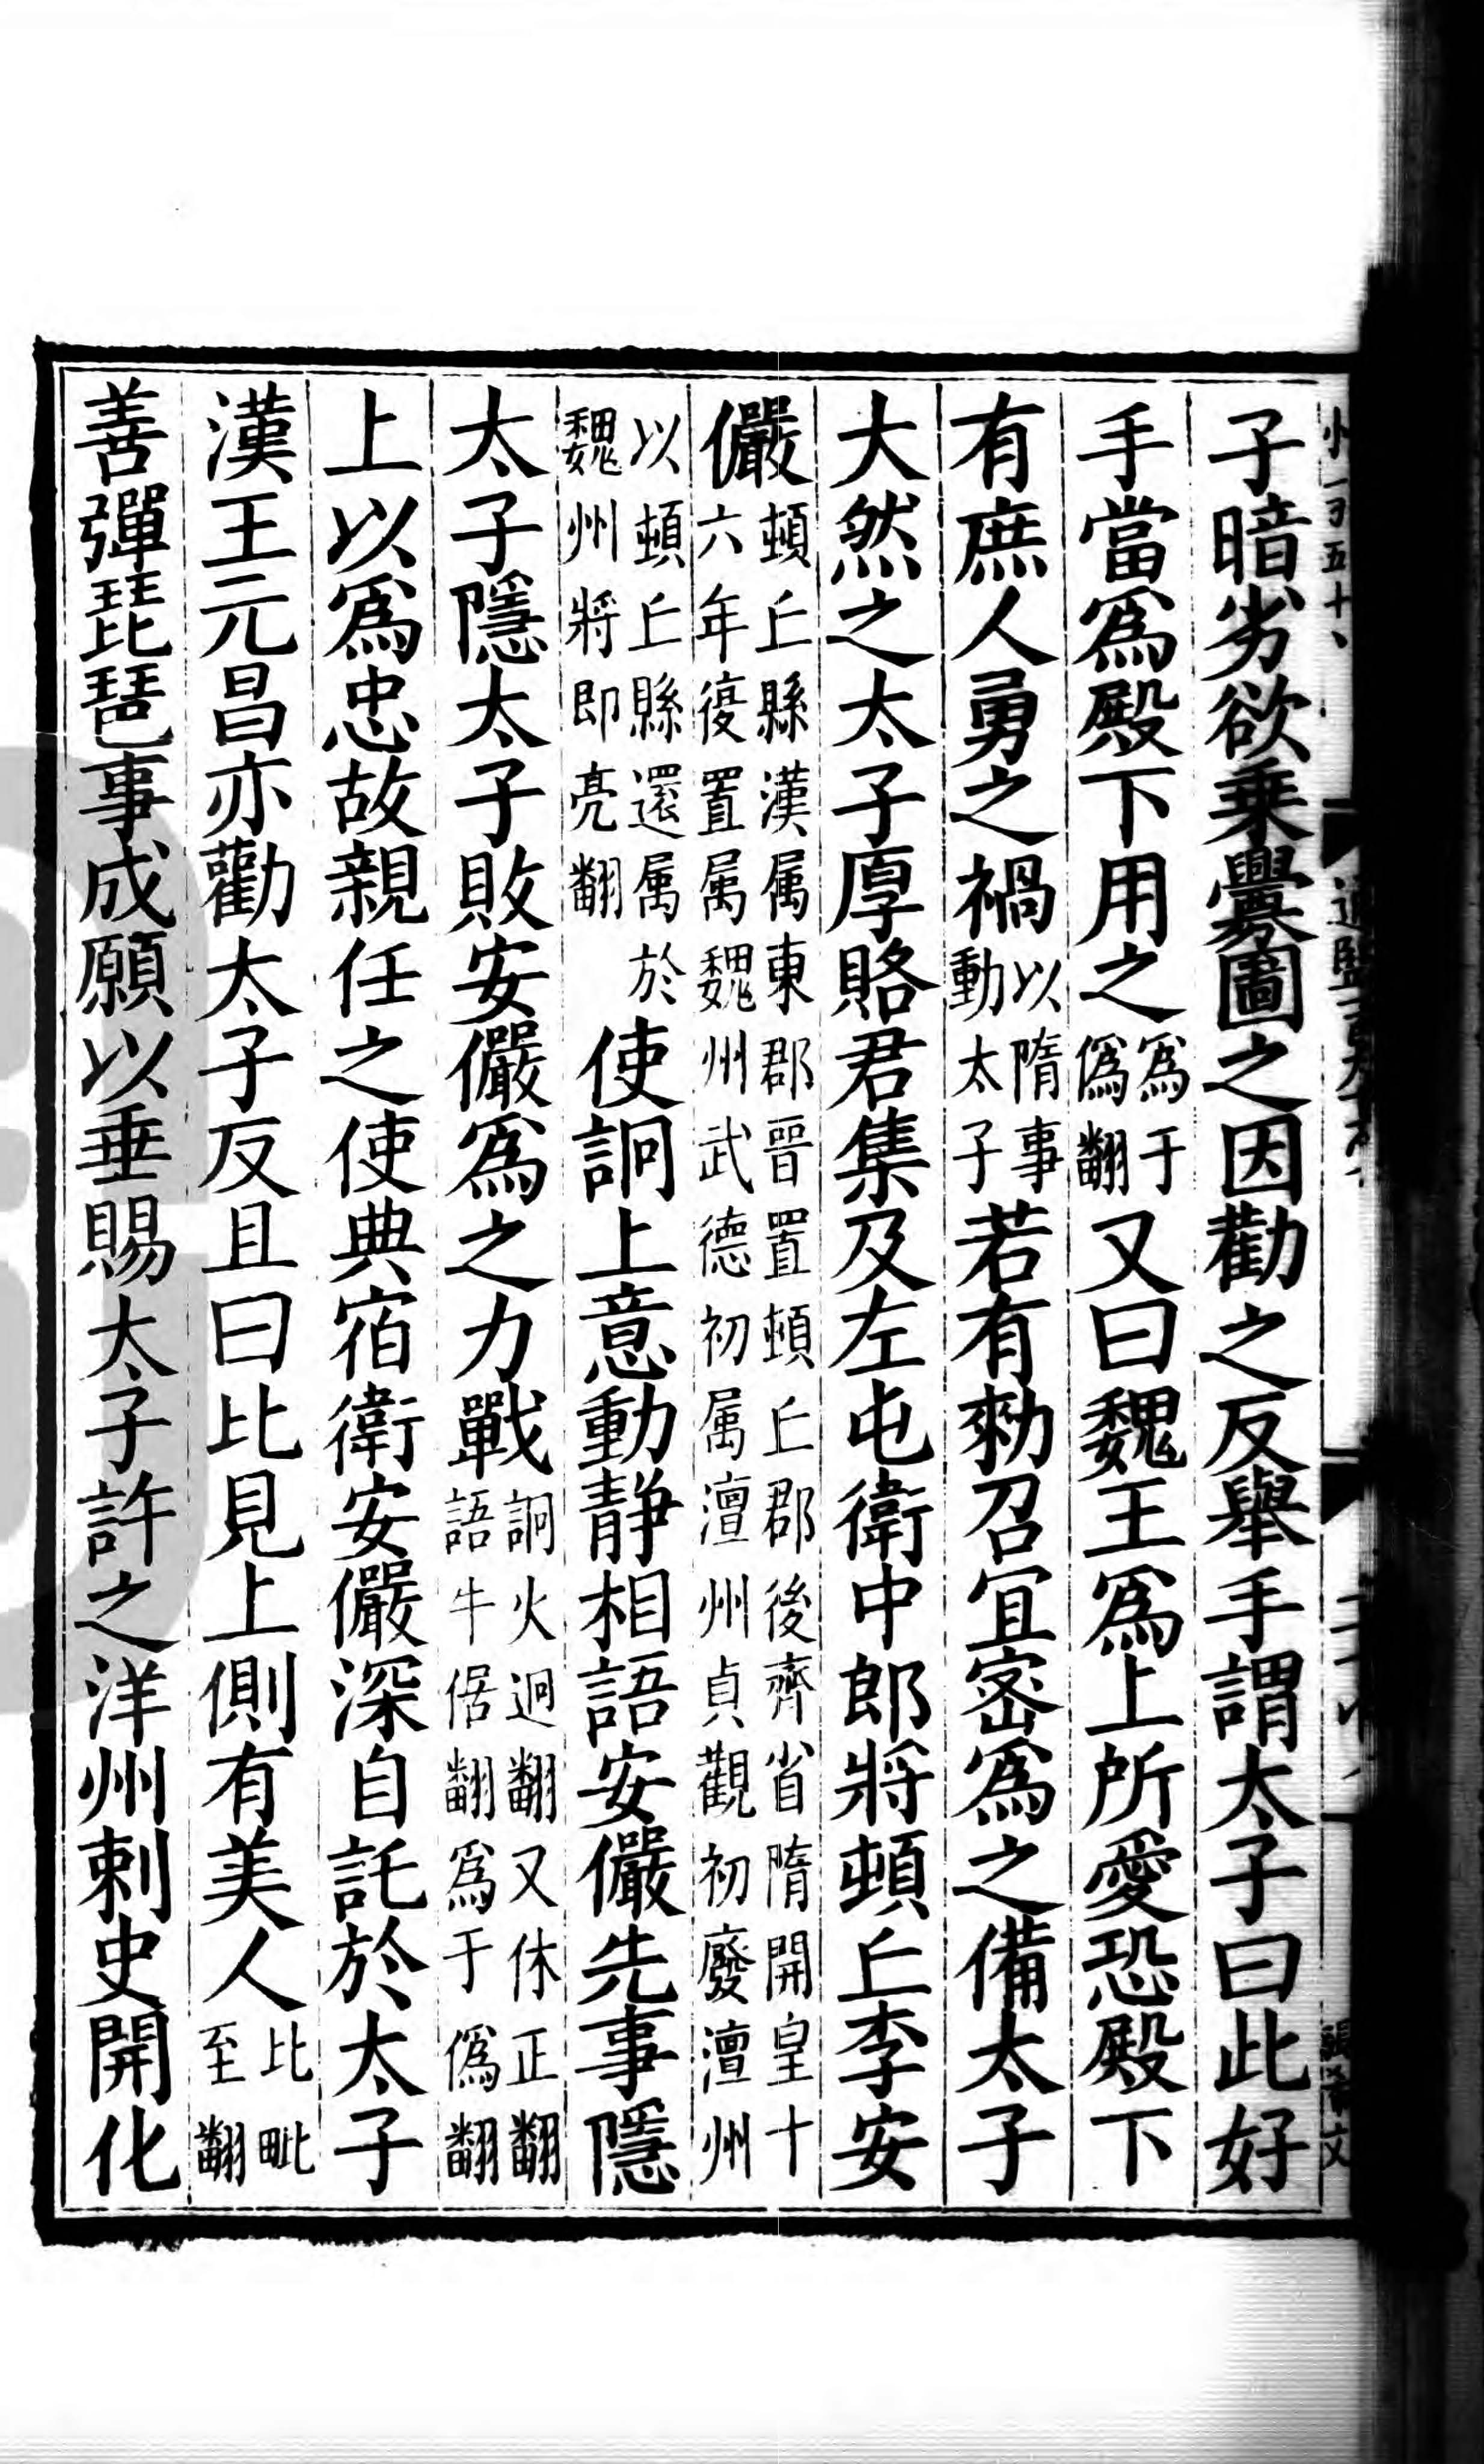 子暗劣欲乗釁圖之因勸之反舉手謂太子曰此好
手當爲殿下用之爲于僞翻又曰魏王爲上所愛恐殿下
有庶人勇之禍以隋事動太子若有勑召宜密爲之備太子
大然之太子厚賂君集及左屯衛中郎將頓丘李安
儼頓丘縣漢属東郡晉置頓丘郡後齊省隋開皇十六年復置属魏州武德初属澶州貞觀初廢澶州
以頓丘縣還属於魏州將即亮翻使詗上意動静相語安儼先事隱
太子隱太子敗安儼爲之力戰詗火迥翻又休正翻語牛倨翻爲于僞翻
上以爲忠故親任之使典宿衛安儼深自託於太子
漢王元昌亦勸太子反且曰比見上側有美人比毗至翻
善彈琵琶事成願以垂賜太子許之洋州刺史開化